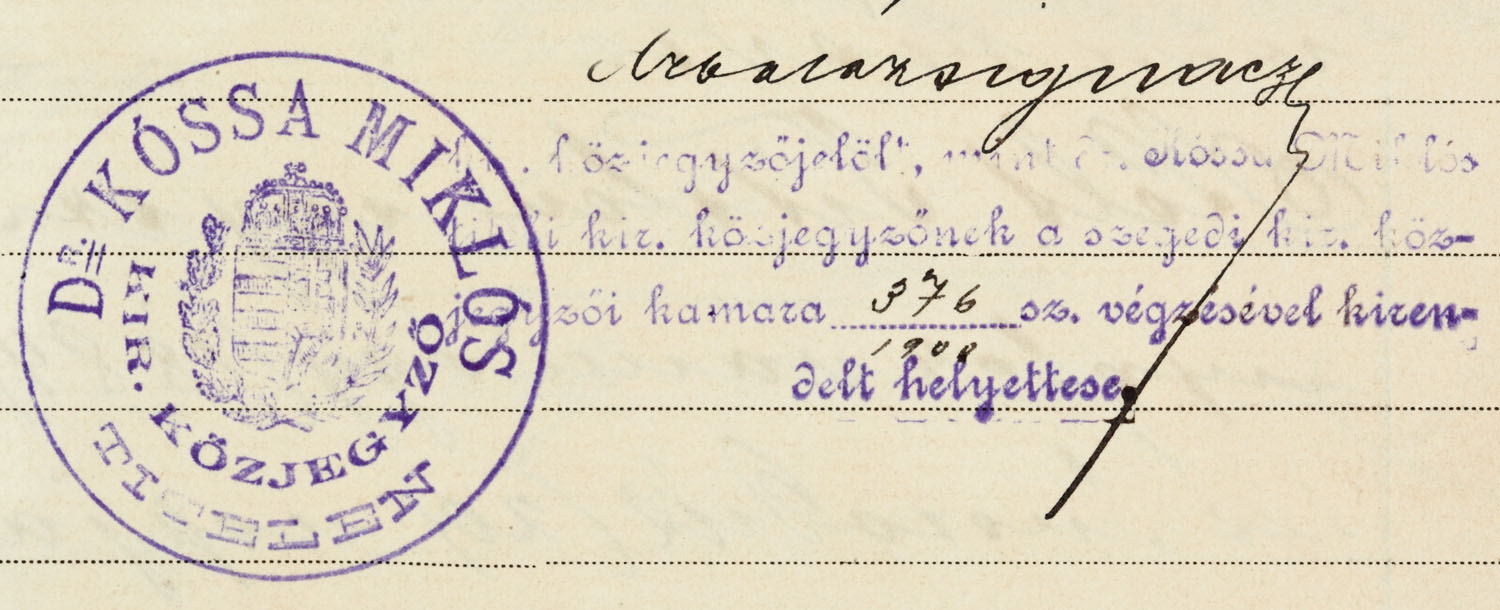 Dr. KÓSSA MIKLÓS
KIR. KÖZJEGYZŐ
TITELEN
kir. közjegyzőjelölt, mint dr. Kóssa Miklós
titeli kir. közjegyzőnek a szegedi kir. köz-
jegyzői kamara 376 sz. végzésével kiren-
1900
delt helyettese.